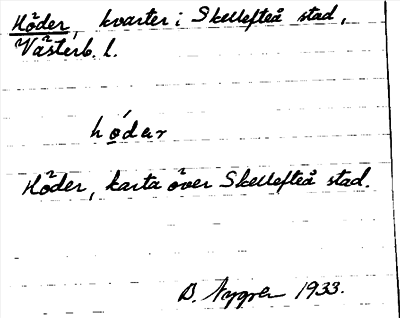 Höder, kvarter i Skellefteå stad,
Västerb. l.
hö́dar
Höder, karta över Skellefteå stad.
B. Nygren 1933.